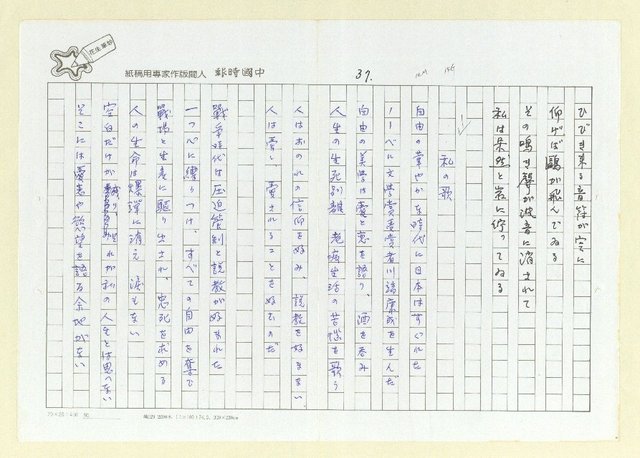 花生筆記
紙稿用專家作版聞人 報時國中
37.
ひびき來る音符が空に
仰げば鷗が飛んでゐる
その鳴き聲が波音に消されて
私は呆然と岩に佇ってゐる
私の歌
自由の華やかな時代に日本はすぐれた
ノーベル文学賞受賞者川端康成を生んだ
自由の美学は愛恋を語り、酒を呑み
人生の生死別離 老病生活の苦惱を歌う
人はおのれの信仰を好み、説教を好まない
人は愛し、愛されることを好むのだ
戰爭時代は圧迫管制と説教が好まれた
一つ一つに縛りつけ、すべての自由を奪て
戰場と生産に駆り出され、忠死を求める
人の生命は爆弾に消え 涙もない
空白だけが残り、それが私の人生とは思へない
そこには愛恋や慾望を語る余地がない